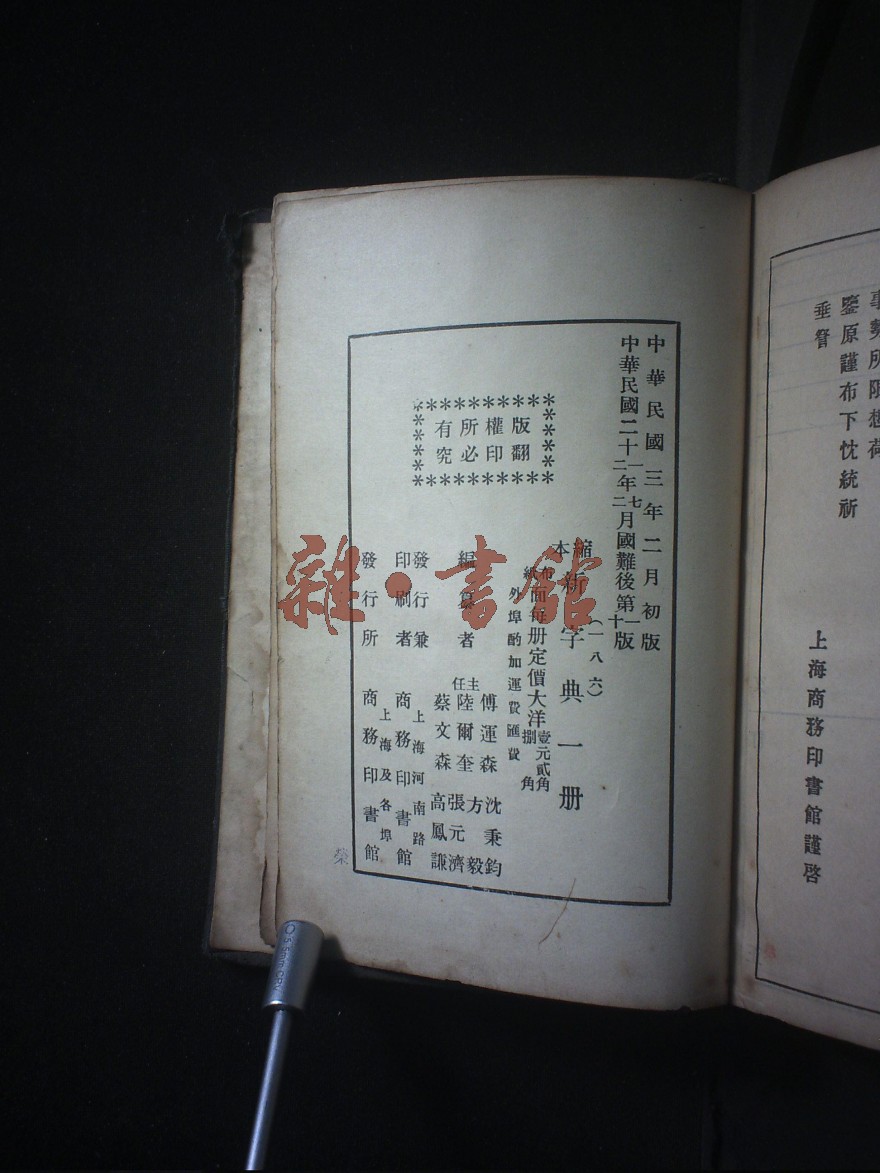 事勢所限想荷
鑒原謹布下忱統祈
垂詧
上海商務印書館謹啓
中華民國三年二月初版
中華民國二十一年七月國難後第一版
二 二 十
(一八六)
縮本新字典一册
布面紙面每册定價大洋壹元貳角捌角
外埠酌加運費匯費
版權所有
翻印必究
編纂者
傅運森 沈秉鈞
主任 陸爾奎 方毅
蔡文森 張元濟
高鳳謙
發行兼印刷者
上海河南路
商務印書館
發行所
上海及各埠
商務印書館
榮
雜·書館
0.5